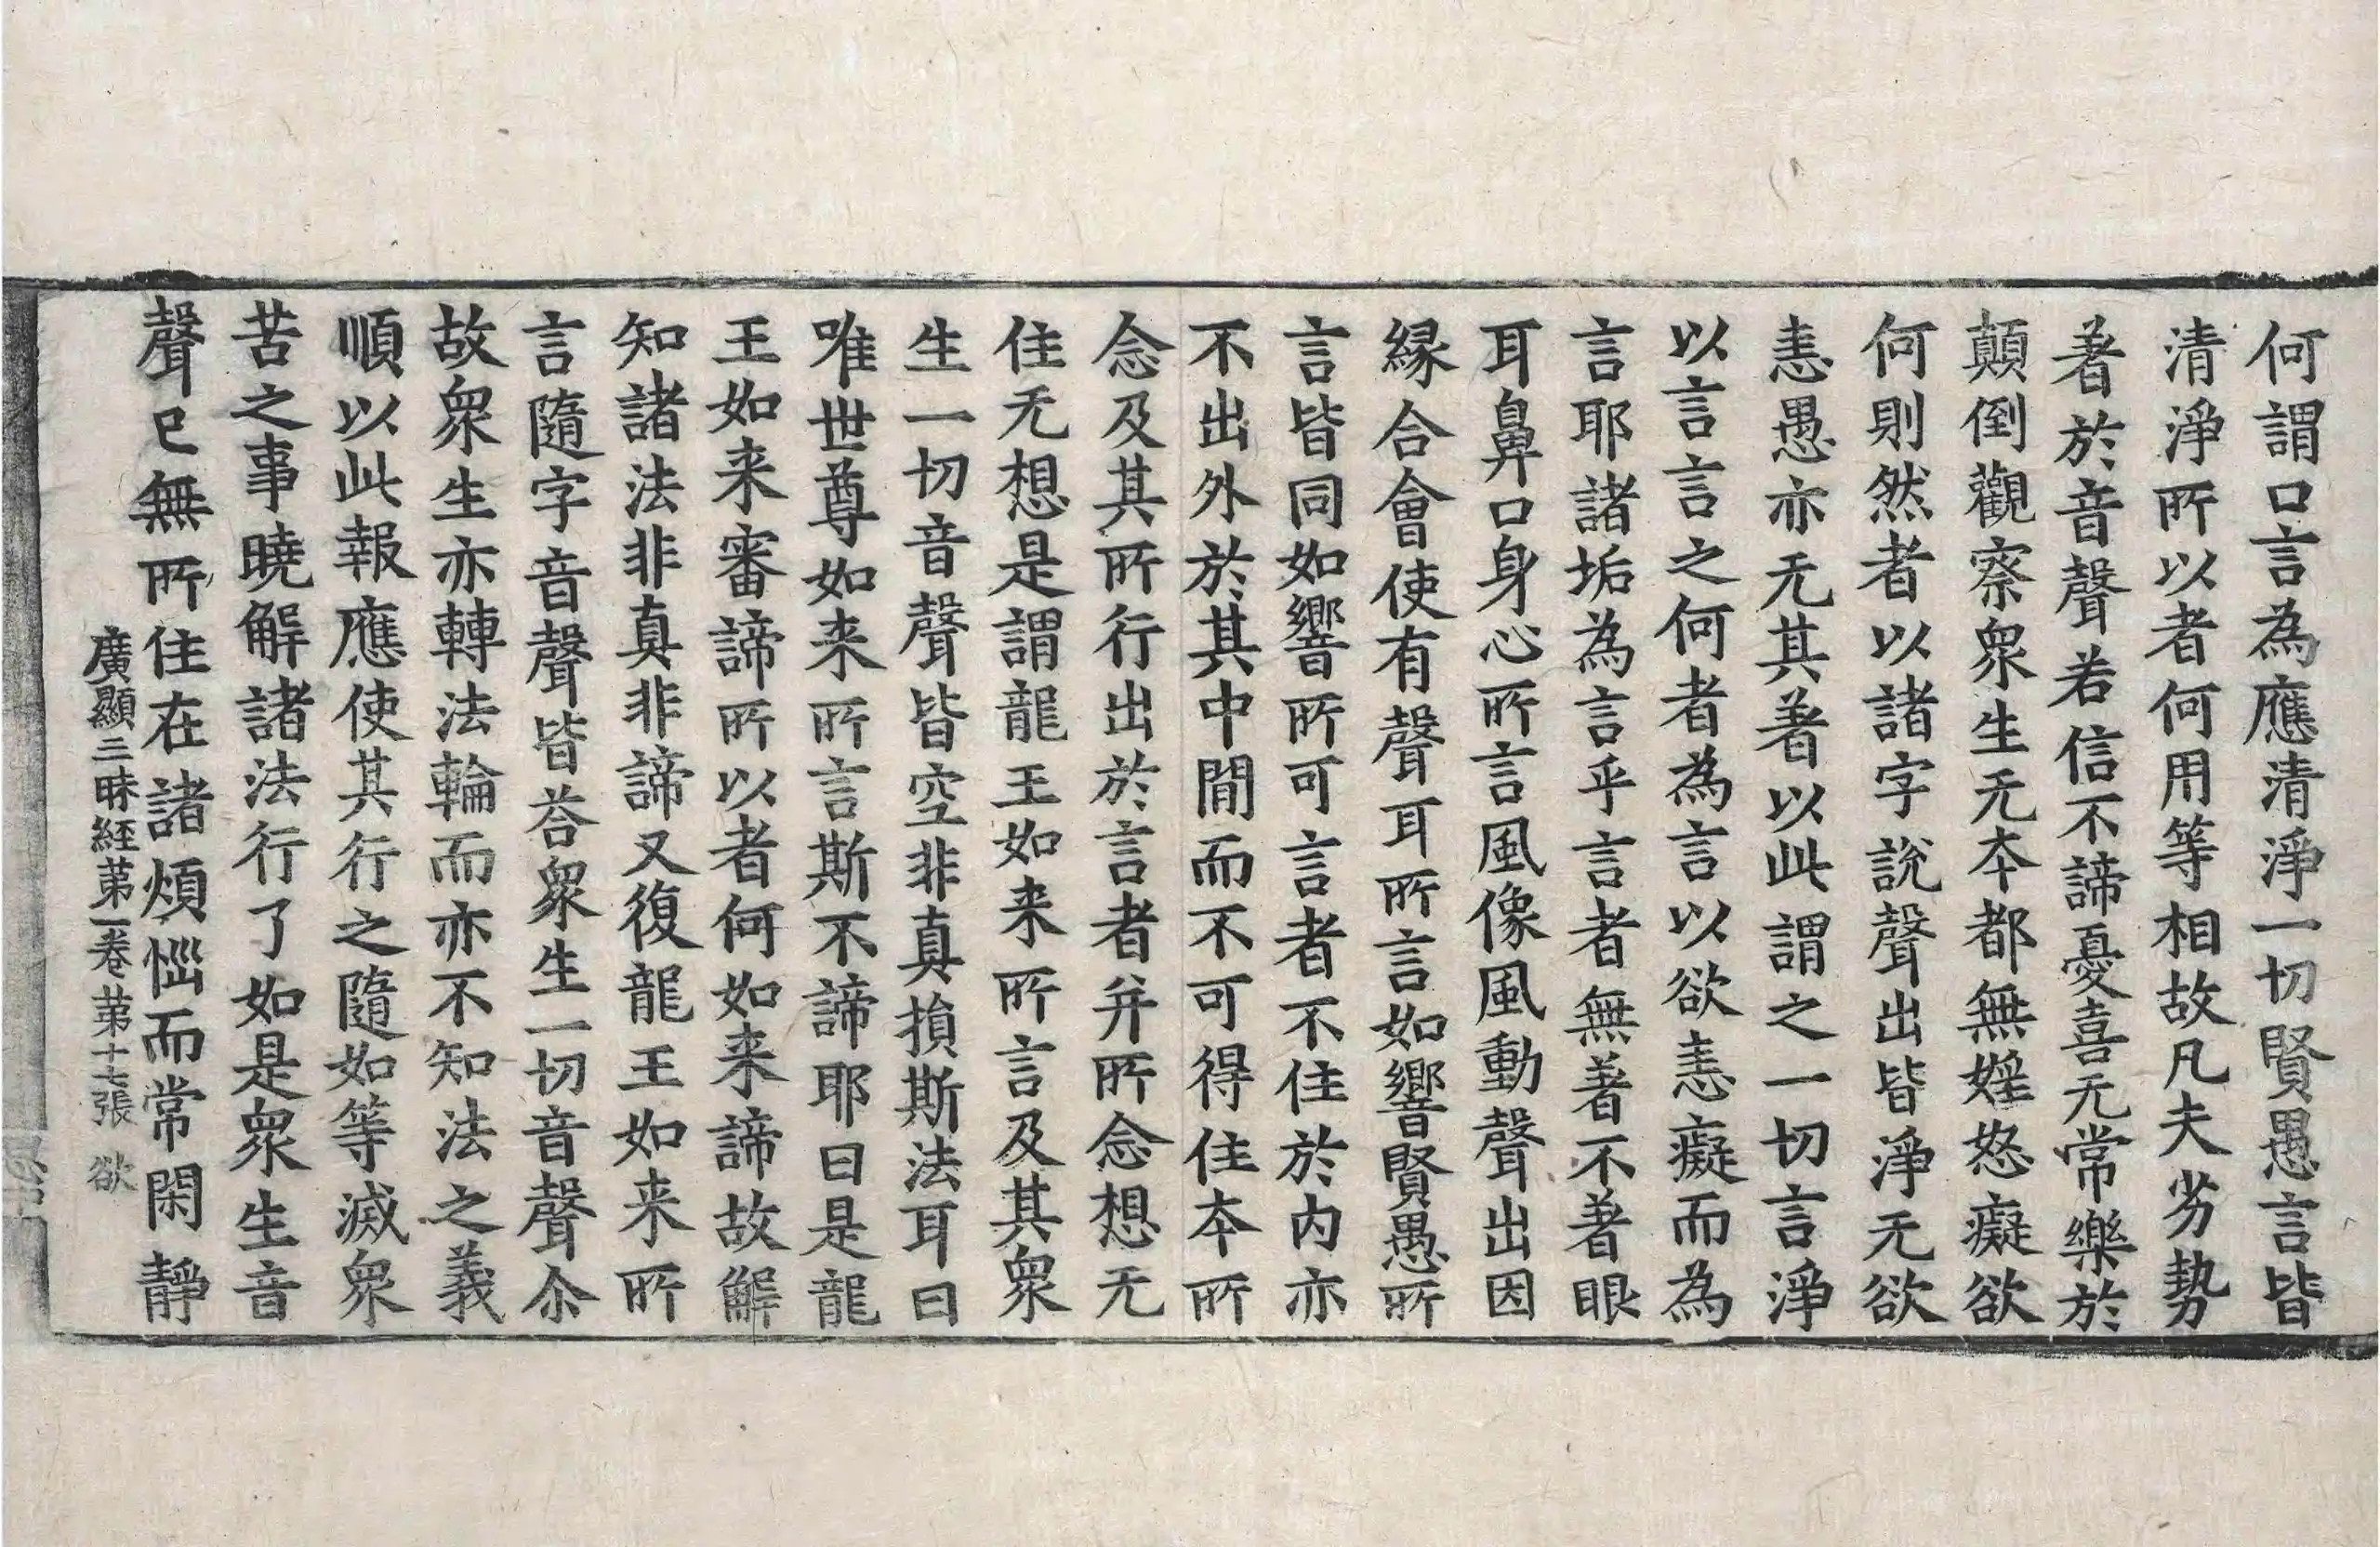 何謂口言為應清淨一切賢愚言皆
清淨所以者何用等相故凡夫劣勢
著於音聲若信不諦憂喜无常樂於
顛倒觀察衆生无本都無婬怒癡欲
何則然者以諸字說聲出皆淨无欲
恚愚亦无其著以此謂之一切言淨
以言言之何者為言以欲恚癡而為
言耶諸垢為言乎言者無著不著眼
耳鼻口身心所言風像風動聲出因
緣合會使有聲耳所言如響賢愚所
言皆同如響所可言者不住於內亦
不出外於其中間而不可得住本所
念及其所行出於言者并所念想无
住无想是謂龍王如来所言及其衆
生一切音聲皆空非真損斯法耳曰
唯世尊如来所言斯不諦耶曰是龍
王如来審諦所以者何如来諦故解
知諸法非真非諦又復龍王如来所
言隨字音聲皆荅衆生一切音聲尒
故衆生亦轉法輪而亦不知法之義
順以此報應使其行之隨如等滅衆
苦之事曉解諸法行了如是衆生音
聲已無所住在諸煩惱而常閑靜
廣顯三昧經苐一卷 苐十七張 欲